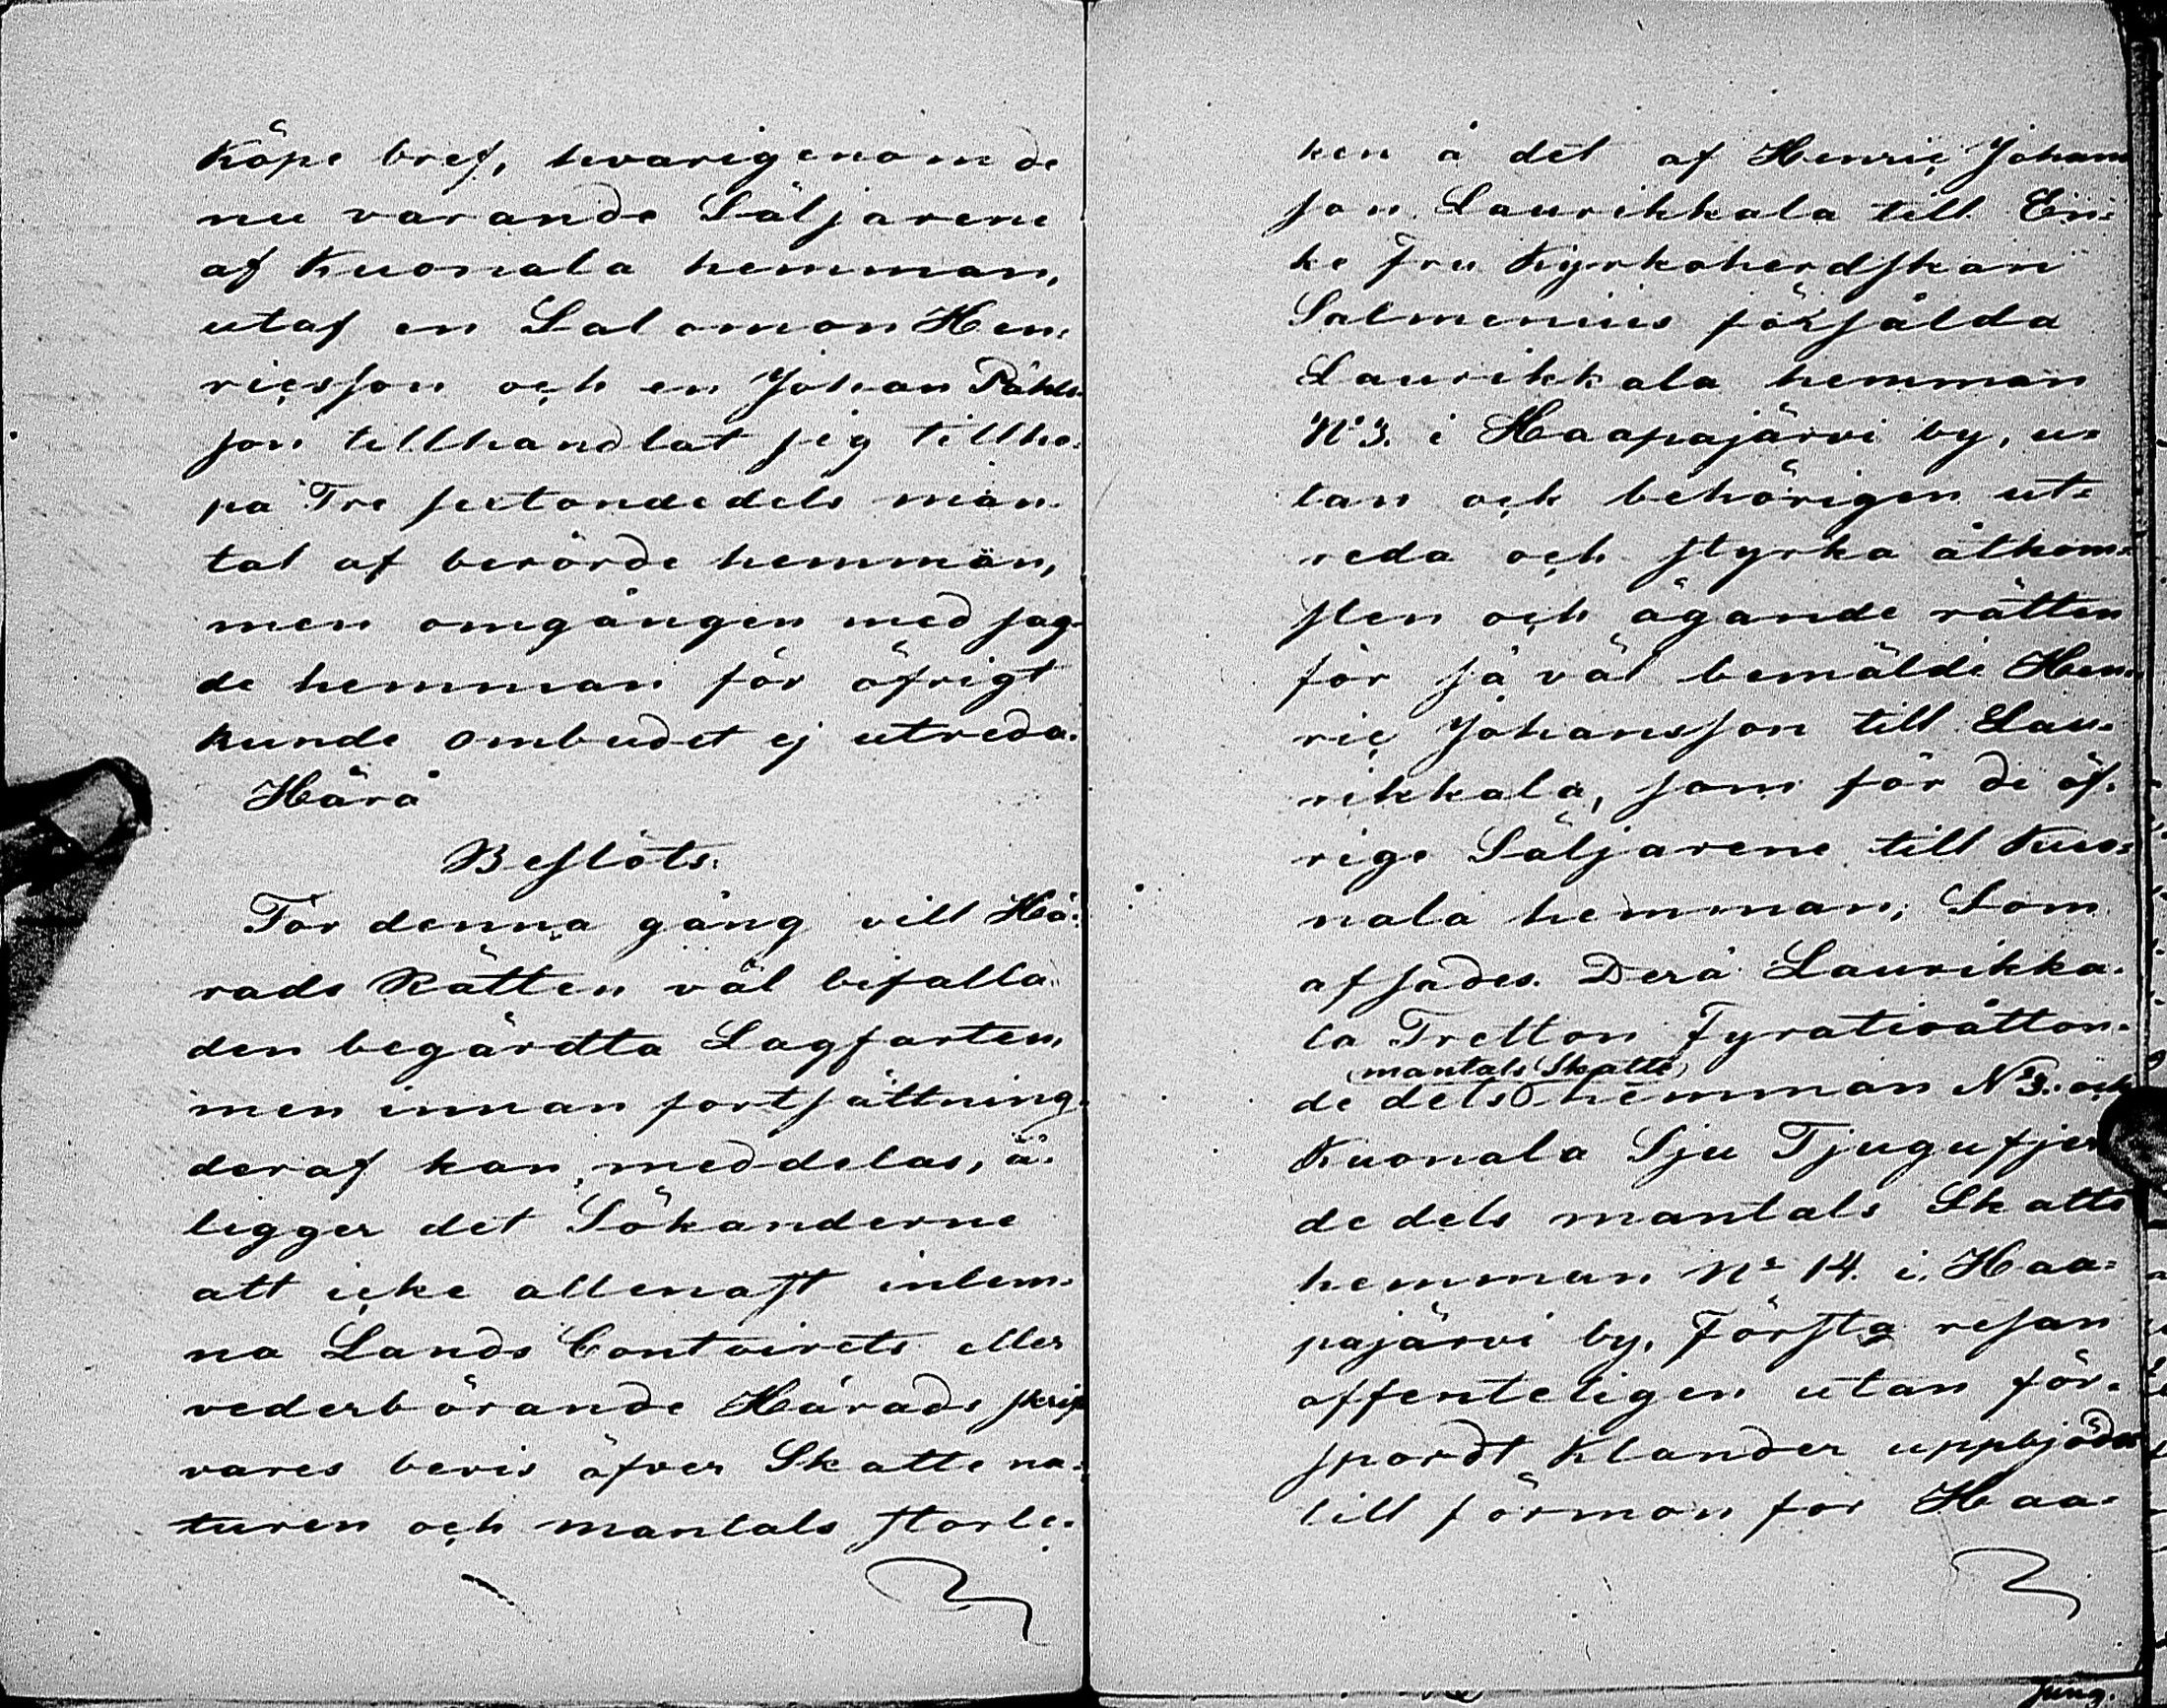 Köpe bref, hvarigenom de
nu varande Säljarene
af Kuonala hemman,
utaf en Salomon Hen=
ricsson och en Johan Påhls=
son tillhandlat sig tillho=
pa Tre sextondedels man=
tal af berörde hemman,
men omgången med sag=
de hemman för öfrigt
kunde Ombudet ej utreda.
Härå
Beslöts:
För denna gång vill Hä=
rads Rätten väl bifalla
den begärdta Lagfarten,
men innan fortsättning
deraf kan meddelas, å=
ligger det Sökanderne
att icke allenast inlem=
na Lands Contoirets eller
vederbörande Härads skrif
vares bevis öfver Skatte na=
turen och mantals storle=
ken å det af Henric Johans
son Laurikkala till En=
ke Fru Kyrkoherdskan
Salmenius försålda
Laurikkala hemman
N:o 3. i Haapajärvi by, u=
tan ock behörigen ut=
reda och styrka åtkom=
sten och ägande rätten
för så väl bemälde Hen=
ric Johansson till Lau=
rikkala, som för de öf=
rige Säljarene till Kuo=
nala hemman; Som
afsades. Derå Laurikka=
la Tretton Fyratioåtton=
(mantals Skatte)
de dels hemman N:o 3. och
Kuonala Sju Tjugufjer
dedels mantals Skatte
hemman N:o 14. i Haa=
pajärvi by, Första resan
offenteligen utan för=
spordt Klander uppbjödos
till förmon för Haa=
jung.